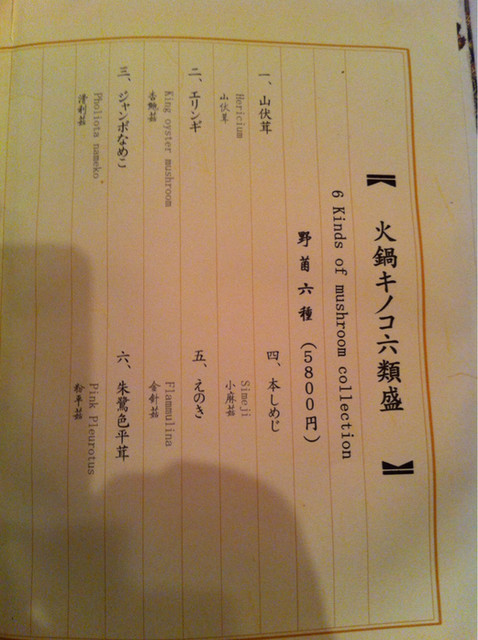 【火鍋キノコ六類盛】
6 Kinds of mushroom collection
野菌六種 (5800円)
一、山伏茸
Hericium
山伏茸
二、エリンギ
King oyster mushroom
杏鲍菇
三、ジャンボなめこ
Pholiota nameko
滑利菇
四、本しめじ
Simeji
小麻菇
五、えのき
Flammulina
金針菇
六、朱鷺色平茸
Pink Pleurotus
粉平菇